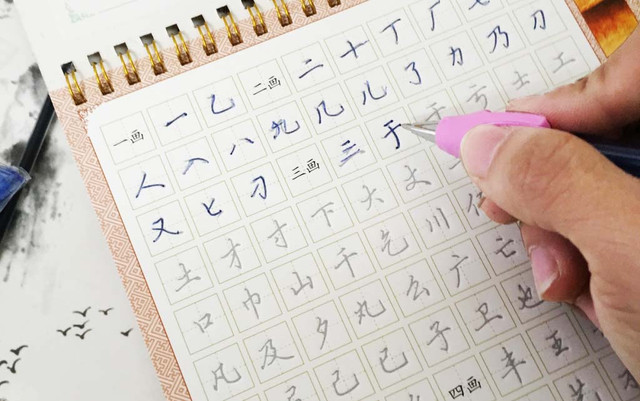 一画 一 乙 二画 二 十 丁 厂
人 入 八 九 几 儿 了 力 乃 刀
又 匕 刁 三画 三 于 亏 士 工
土 才 寸 下 大 丈
口 巾 山 千 乞 川
凡 及 夕 丸 么 广 亡
己 已 子 卫 也
四画 丰